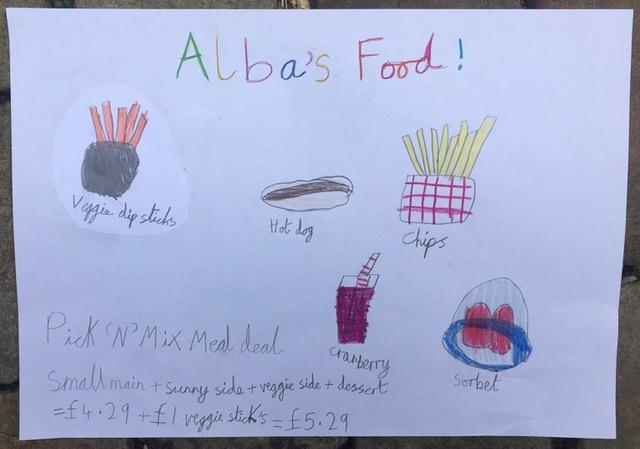 Alba's Food!
Veggie dip sticks
Hot dog
Chips
Cranberry
Sorbet
Pick 'N' Mix Meal deal
Small main + sunny side + veggie side + dessert
= £4.29 + £1 veggie stick's = £5.29